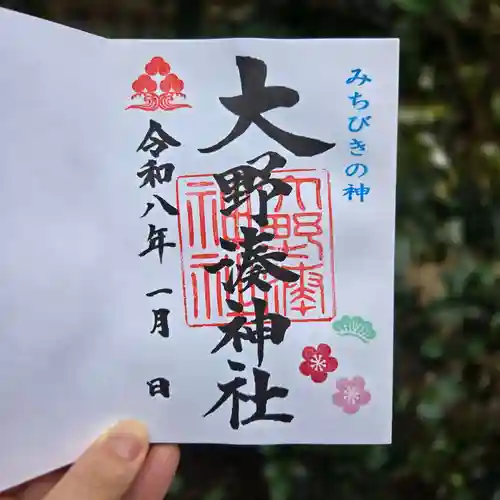 みちびきの神
大野湊神社
大野湊神社
令和八年 一月 日